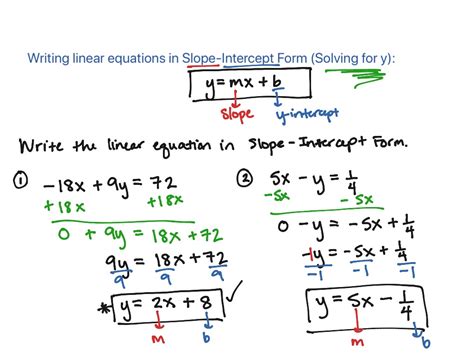 Writing linear equations in Slope-Intercept Form (Solving for y):
y = mx + b
slope y-intercept
Write the linear equation in Slope-Intercept Form.
① -18x + 9y = 72
+18x +18x
0 + 9y = 18x + 72
9y = 18x + 72
9 9 9
* y = 2x + 8 ✓
m b
② 5x - y = 1/4
-5x -5x
0 - y = -5x + 1/4
-1y = -5x + 1/4
-1 -1 -1
y = 5x - 1/4
m b